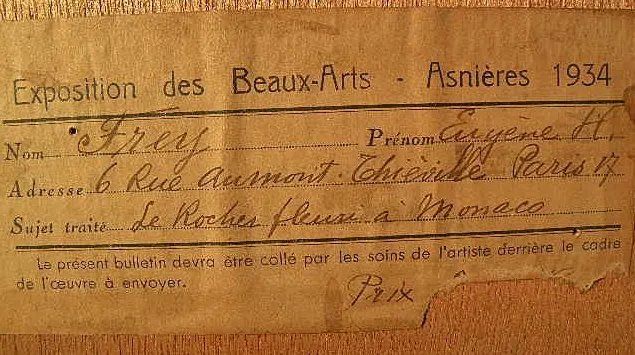 Exposition des Beaux-Arts - Asnières 1934
Nom Frey Prénom Eugène H.
Adresse 6 Rue Aumont-Thiéville Paris 17
Sujet traité Le Rocher fleuri à Monaco
Le présent bulletin devra être collé par les soins de l'artiste derrière le cadre
de l'œuvre à envoyer.
Prix